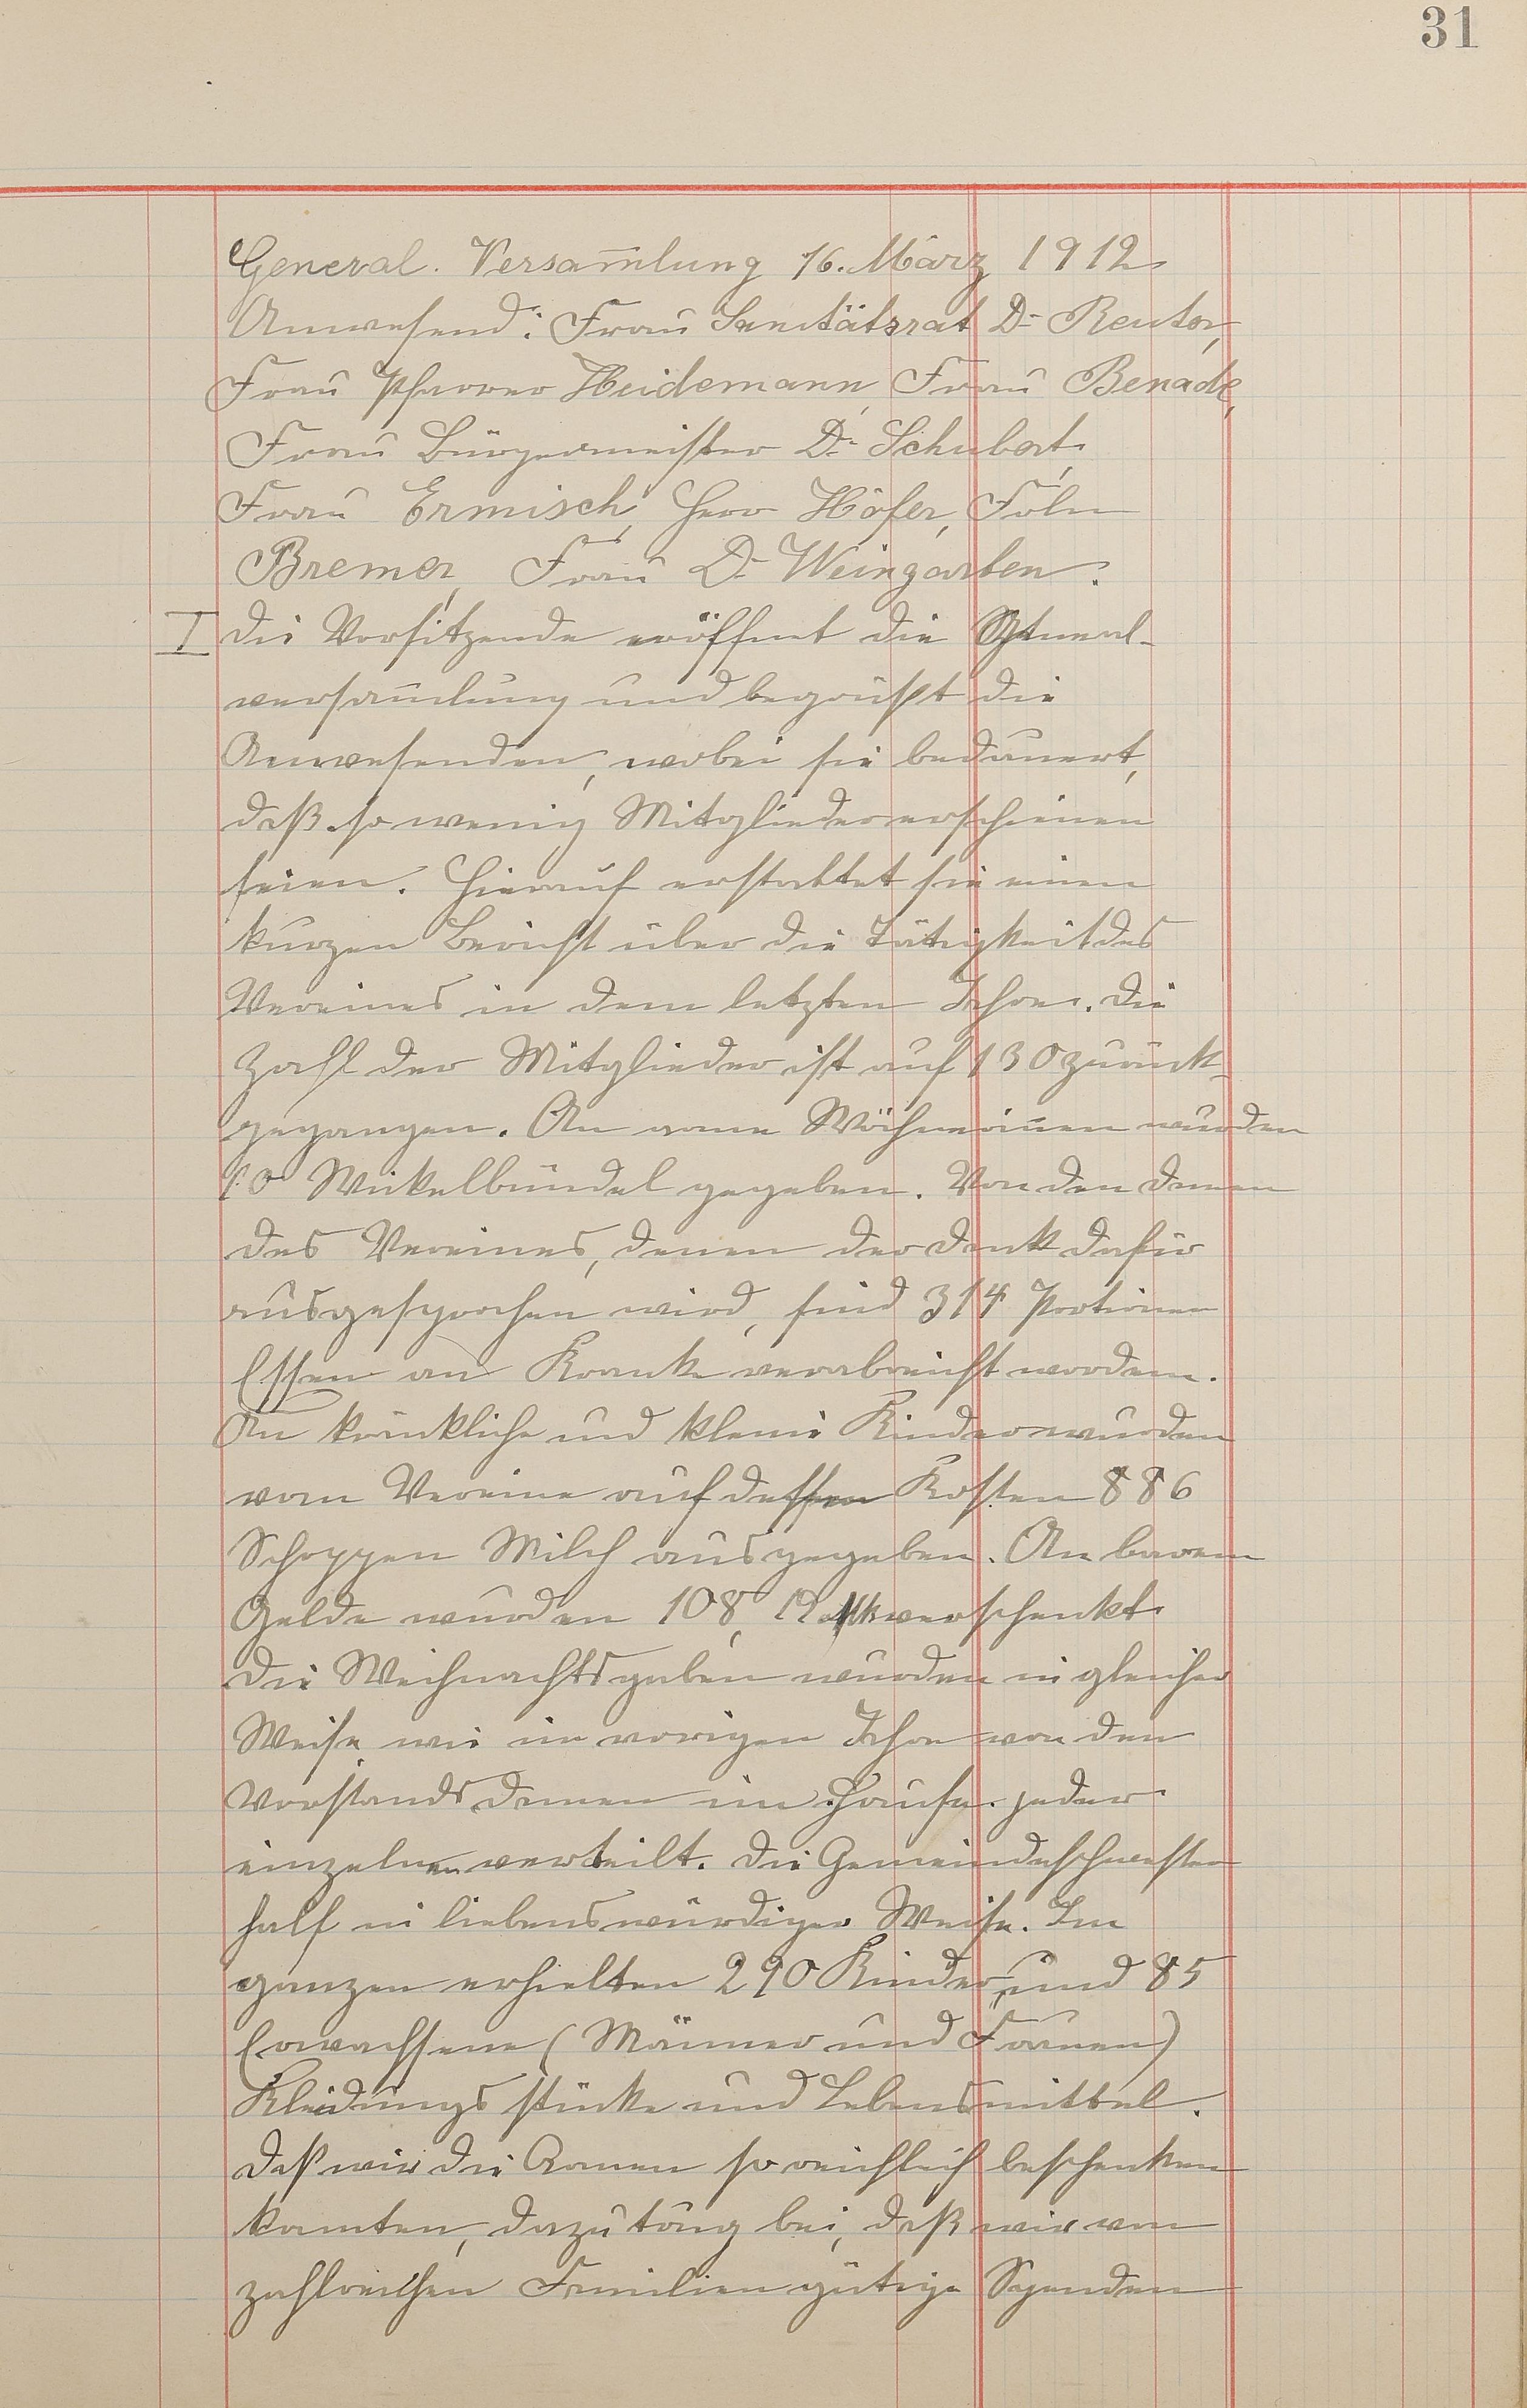 31
General. Versam̅lung 16. März 1912
Anwesend: Frau Sanitätsrat Dr Reuter,
Frau Pfarrer Heidemann, Frau Benade,
Frau Bürgermeister Dr Schubert,
Frau Ermisch, Herr Höfer, Frln
Bremer, Frau Dr Weingarten.
I Die Vorsitzende eröffnet die General-
versam̅lung und begrüßt die
Anwesenden, wobei sie bedauert,
daß so wenig Mitglieder erschienen
seien. Hierauf erstattet sie einen
kurzen Bericht über die Tätigkeit des
Vereines in dem letzten Jahre. Die
Zahl der Mitglieder ist auf 130 zurück-
gegangen. An arme Wöchnerin̅en wurden
10 Wickelbündel gegeben. Von den Damen
des Vereines, denen der Dank dafür
ausgesprochen wird, sind 314 Portionen
Essen an Kranke verabreicht worden.
An kränkliche und kleine Kinder wurden
vom Vereine auf dessen Kosten 886
Schoppen Milch ausgegeben. An barem
Gelde wurden 108, 19 Mk verschenkt.
Die Weihnachtsgaben wurden in gleicher
Weise wie im vorigen Jahre von den
Vorstandsdamen im Hause jeder
einzelnen verteilt. Die Gemeindeschwester
half in liebenswürdiger Weise. Im
ganzen erhielten 290 Kinder und 85
Erwachsene (Männer und Frauen)
Kleidungsstücke und Lebensmittel.
Daß wir die Armen so reichlich beschenken
konnten, dazu trug bei, daß wir von
zahlreichen Familien gütige Spenden